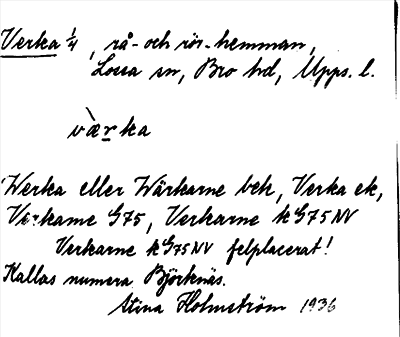 Verka 1/4, rå- och rör-hemman,
Lossa sn, Bro hd, Upps. l.
væ̀rka
Werka eller Wärkarne beh, Verka ek,
Verkarne G75, Verkarne k G75 NV
Verkarne k G75 NV felplacerat!
Kallas numera Björknäs.
Stina Holmström 1936